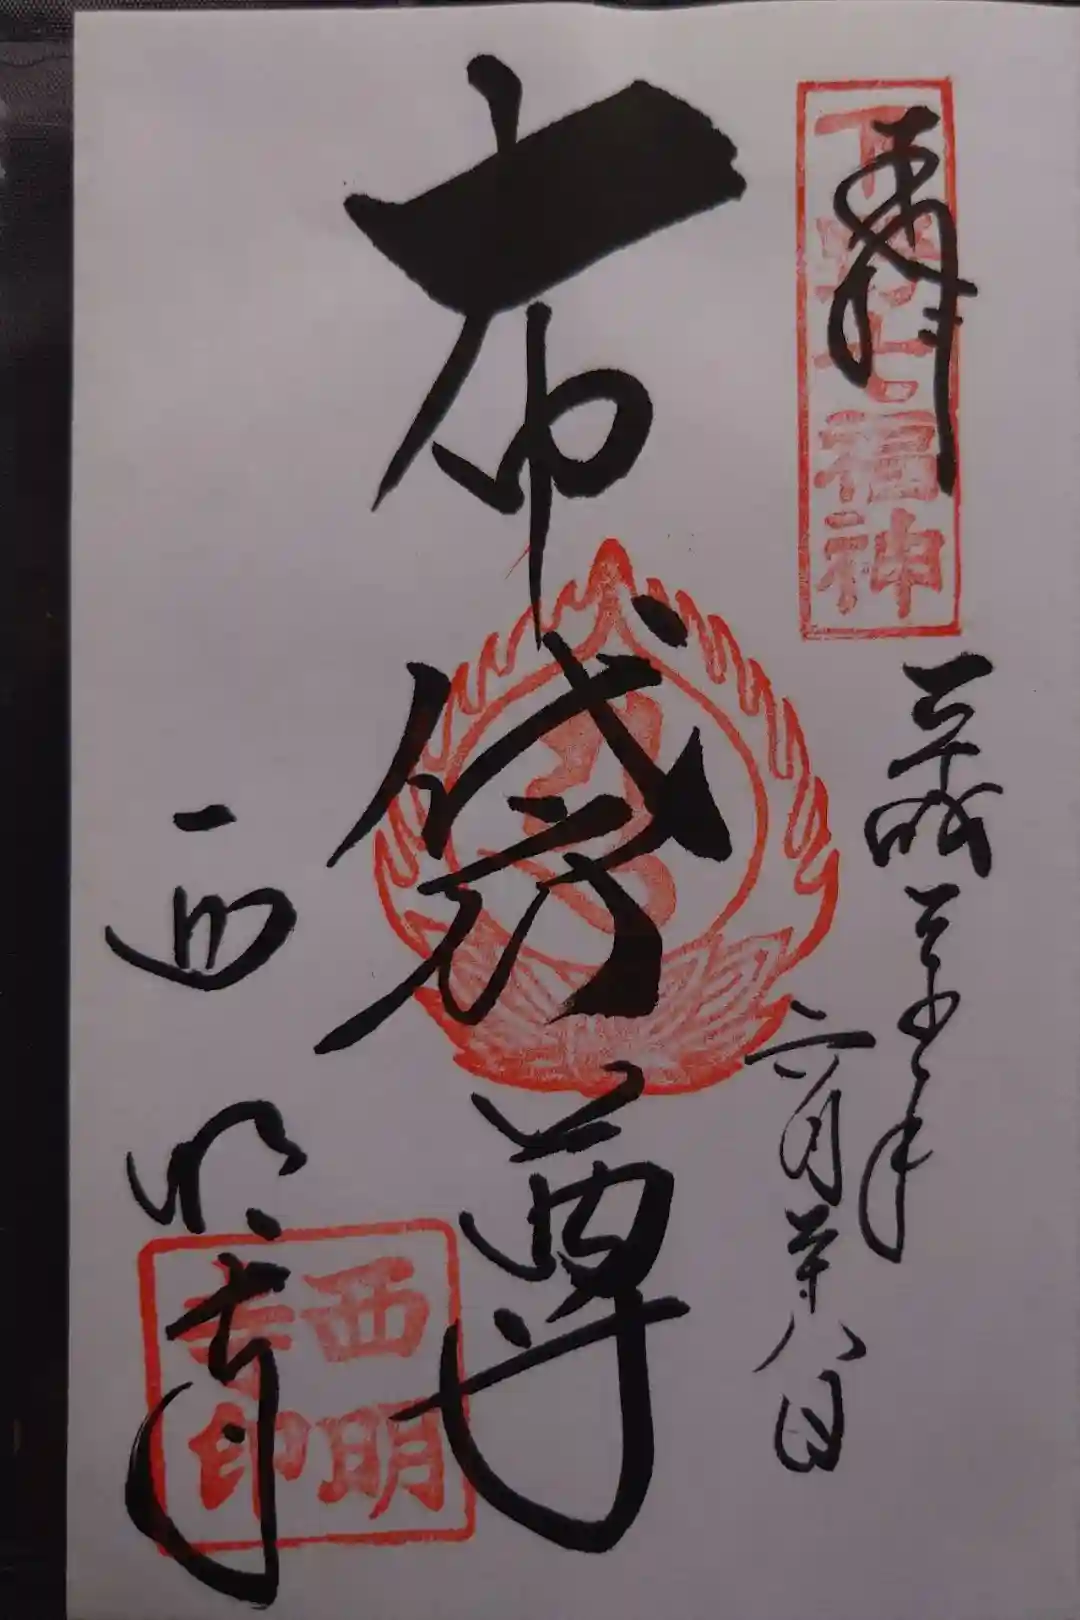 奉拝
下野七福神
平成
六月
八日
布袋尊
西明寺
西明寺印